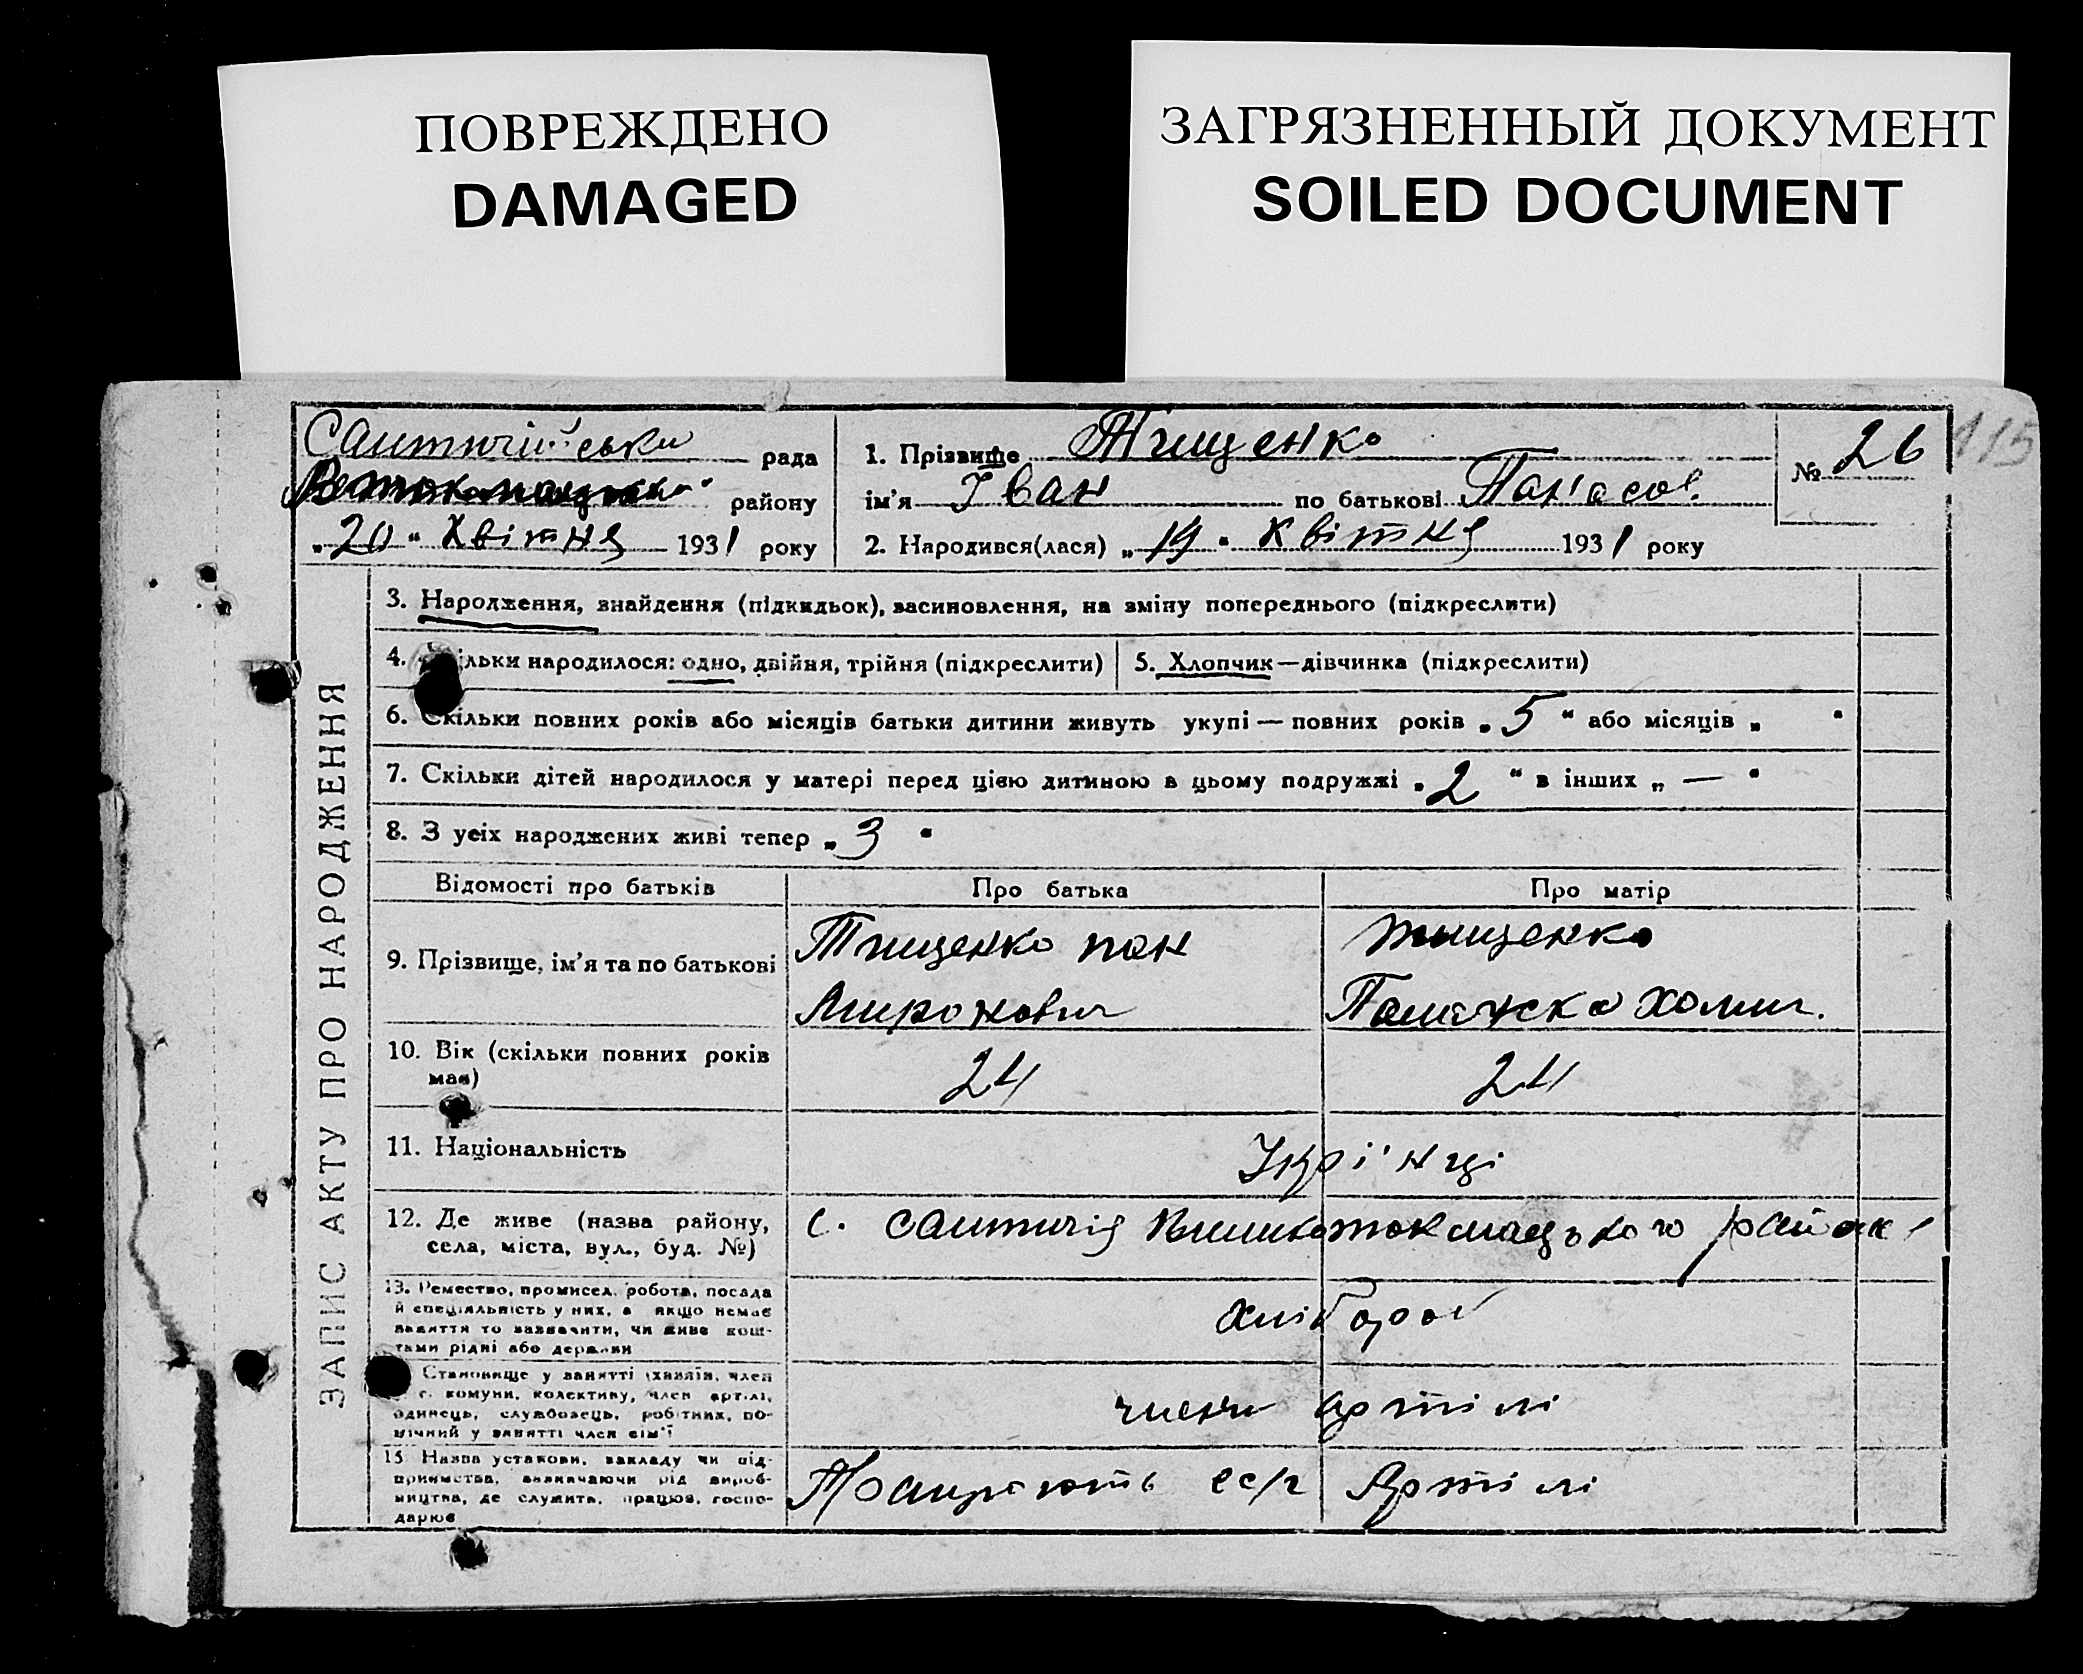 ПОВРЕЖДЕНО
DAMAGED
ЗАГРЯЗНЕННЫЙ ДОКУМЕНТ
SOILED DOCUMENT
115
рада
району
„20“ Квітня 1931 року
1. Прізвище Тищенко
ім'я Іван по батькові Панасов.
2. Народився(лася) „19“ Квітня 1931 року
№ 26
ЗАПИС АКТУ ПРО НАРОДЖЕННЯ
3. Народження, знайдення (підкидьок), васиновлення, на зміну попереднього (підкреслити)
4. ільки народилося: одно, двійня, трійня (підкреслити)
5. Хлопчик—дівчинка (підкреслити)
6. Скільки повних років або місяців батьки дитини живуть укупі — повних років „5“ або місяців „ “
7. Скільки дітей народилося у матері перед цією дитиною в цьому подружжі „2“ в інших „—“
8. З усіх народжених живі тепер „3“
Відомості про батьків
Про батька
Про матір
9. Прізвище, ім'я та по батькові
Тищенко пан
Миронович
Тищенко
10. Вік (скільки повних років
має)
24
24
11. Національність
Украі'нці
12. Де живе (назва району,
села, міста, вул., буд. №)
с.
13. Ремество, промисел, робота, посада
й спеціяльність у них, а якщо немає
вакяття то вазвачити, чи живе кош-
тами рідні або держави
хлібороб
Становище у занятті (хазяїн, член
с. комуни, колективу, член артілі,
одинець, службовець, робітник, по-
мічний у занятті член сім'ї
члени артілі
15. Назва установи, закладу чи під-
приємства, визначаючи рід вироб-
ництва, де служить, працює, госпо-
дарює
Працюють с/г Артілі